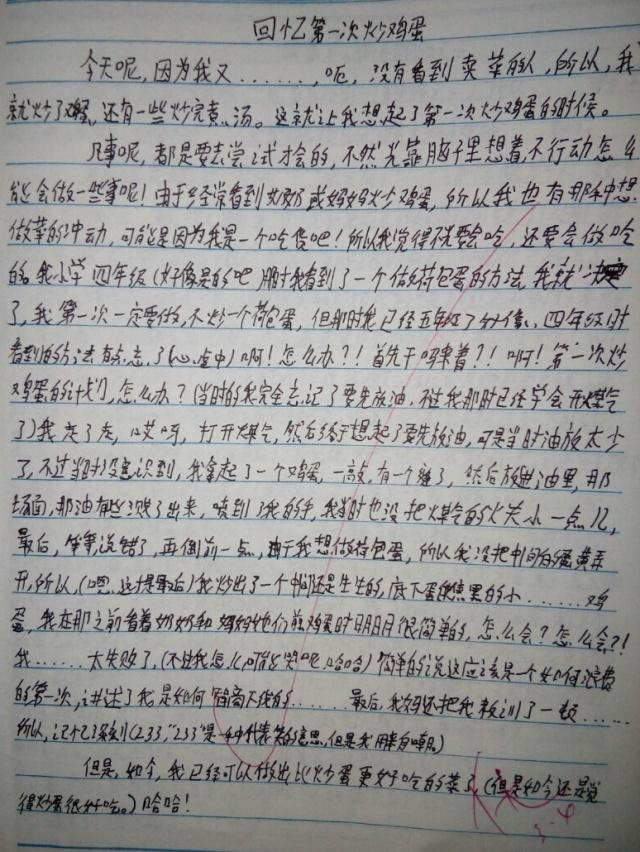 回忆第一次炒鸡蛋
今天呢,因为我又………,呃,没有看到卖菜的人,所以,我
就炒了鸡蛋,还有一些炒完煮汤。这就让我想起了第一次炒鸡蛋的时候。
凡事呢,都是要去尝试才会的,不然光靠脑子里想着,不行动怎么
能会做一些事呢!由于经常看到奶奶或妈妈炒鸡蛋,所以我也有那种想
做菜的冲动,可能是因为我是一个吃货吧!所以我觉得不光要会吃,还要会做吃
的。我小学四年级(好像是的吧)那时我看到了一个做荷包蛋的方法,我就决定
了,我第一次一定要做,不炒一个荷包蛋,但那时我已经五年级了好像,四年级时
看到的方法有点忘了(心虚中)啊!怎么办?!首先干吗来着?!啊!第一次炒
鸡蛋的计划,怎么办?(当时的我完全忘记了要先放油,不过我那时已经学会开煤气
了)我走了走,哎呀,打开煤气,然后终于想起了要先放油,可是当时油放太少
了,不过当时没意识到,我拿起了一个鸡蛋,一敲,有一个缝了,然后放进油里,那
场面,那油有些溅了出来,喷到了我的手,我当时也没把煤气的火关小一点儿,
最后,等等,说错了,再倒前一点,由于我想做荷包蛋,所以我没把中间的蛋黄弄
开,所以,(嗯,这才是最后)我炒出了一个中间还是生生的,底下蛋便焦黑的小………鸡
蛋,我在那之前看着奶奶和妈妈她们煎鸡蛋时明明很简单的,怎么会?怎么会?!
我………太失败了,(不过我怎么可能哭呢,哈哈)简单的说这应该是一个如何浪费
的第一次,讲述了我是如何智商不我的………最后,我妈还把我教训了一顿……
所以,记忆深刻(233,“233”是一种代表笑的意思,但是我用来自嘲)
但是,如今,我已经可以做出比炒蛋更好吃的菜了,(但是如今还是觉
得炒蛋很好吃。)哈哈!